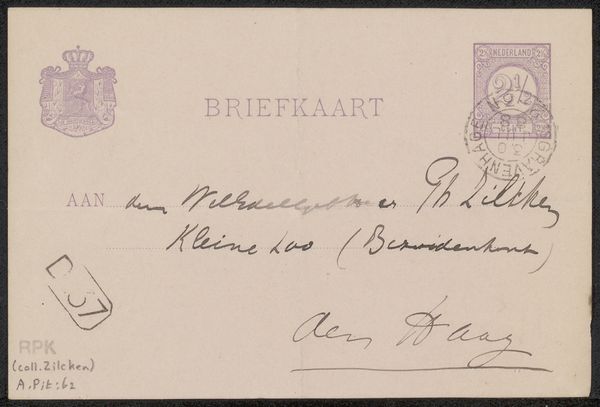 2½ NEDERLAND 2½
2½
BRIEFKAART
'S GRAVENHAGE
AAN den WelEdelgeb Heer Ph Zilcken
Kleine Loo (Bezuidenhout)
den Haag
RPK
(coll. Zilcken)
A.Pit:62